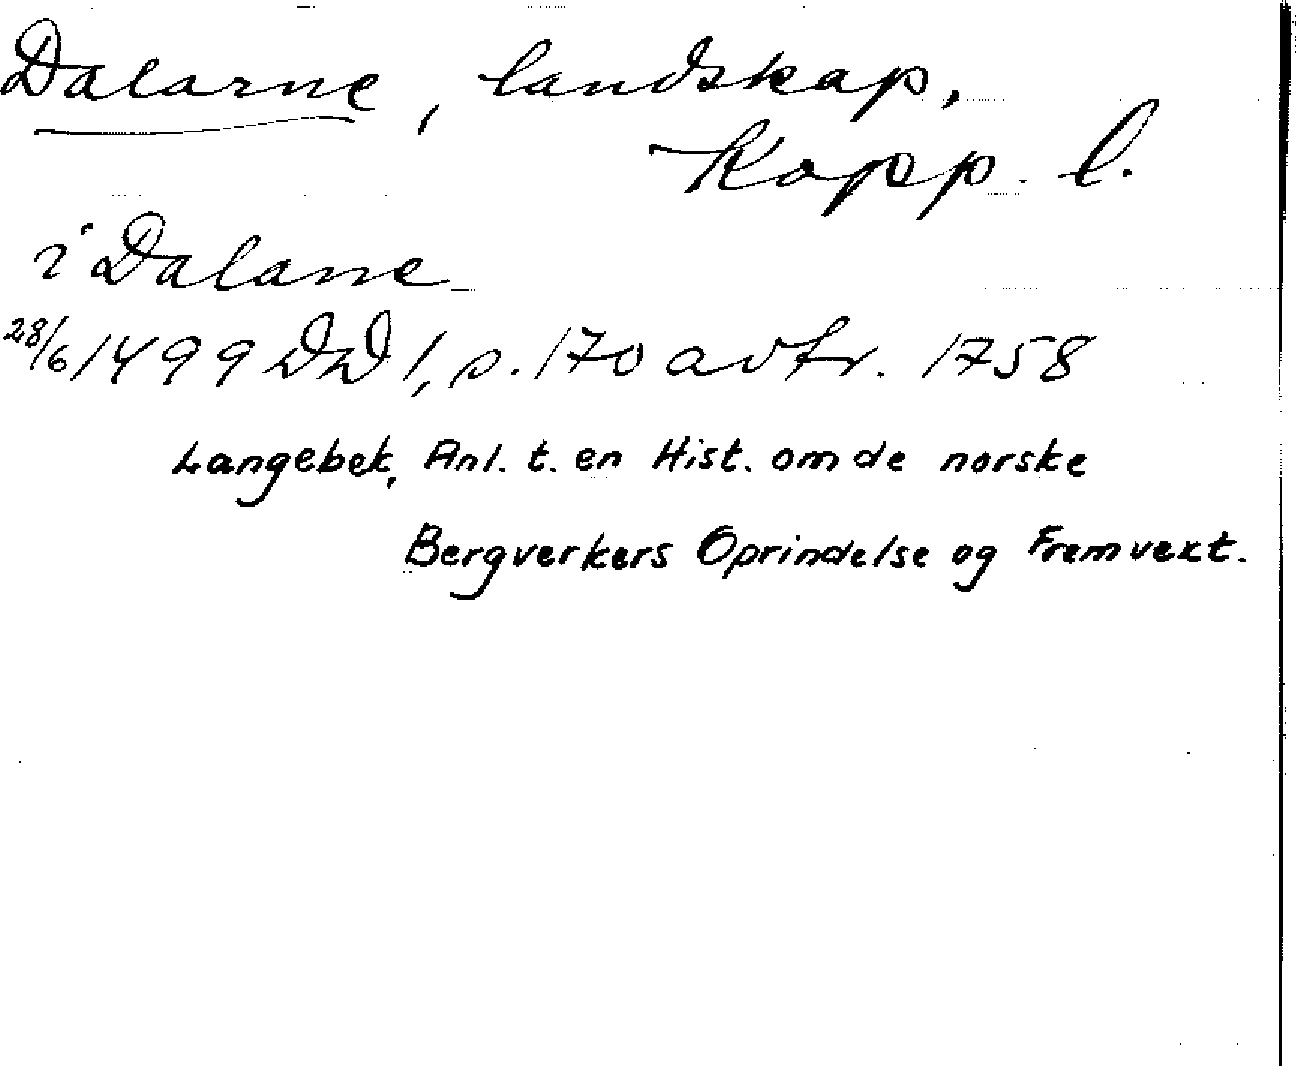 Dalarne, landskap,
Kopp. l.
i Dalarne
28/6 1499 DD 1, s. 170 avtr. 1758
Langebek, Anl. t. en Hist. om de norske
Bergverkers Oprindelse og Fremvext.